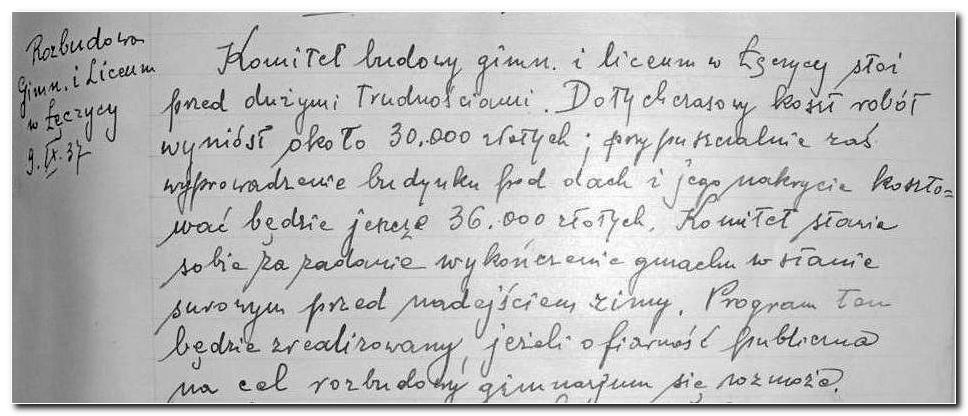 Rozbudowa
Gimn. i Liceum
w Łęczycy
9.IX.37
Komitet budowy gimn. i liceum w Łęczycy stoi
przed dużymi trudnościami. Dotychczasowy koszt robót
wyniósł około 30.000 złotych; przypuszczalnie zaś
wyprowadzenie budynku pod dach i jego nakrycie koszto=
wać będzie jeszcze 36.000 złotych. Komitet stawia
sobie za zadanie wykończenie gmachu w stanie
surowym przed nadejściem zimy. Program ten
będzie zrealizowany, jeżeli ofiarność publiczna
na cel rozbudowy gimnazjum się wzmoże.